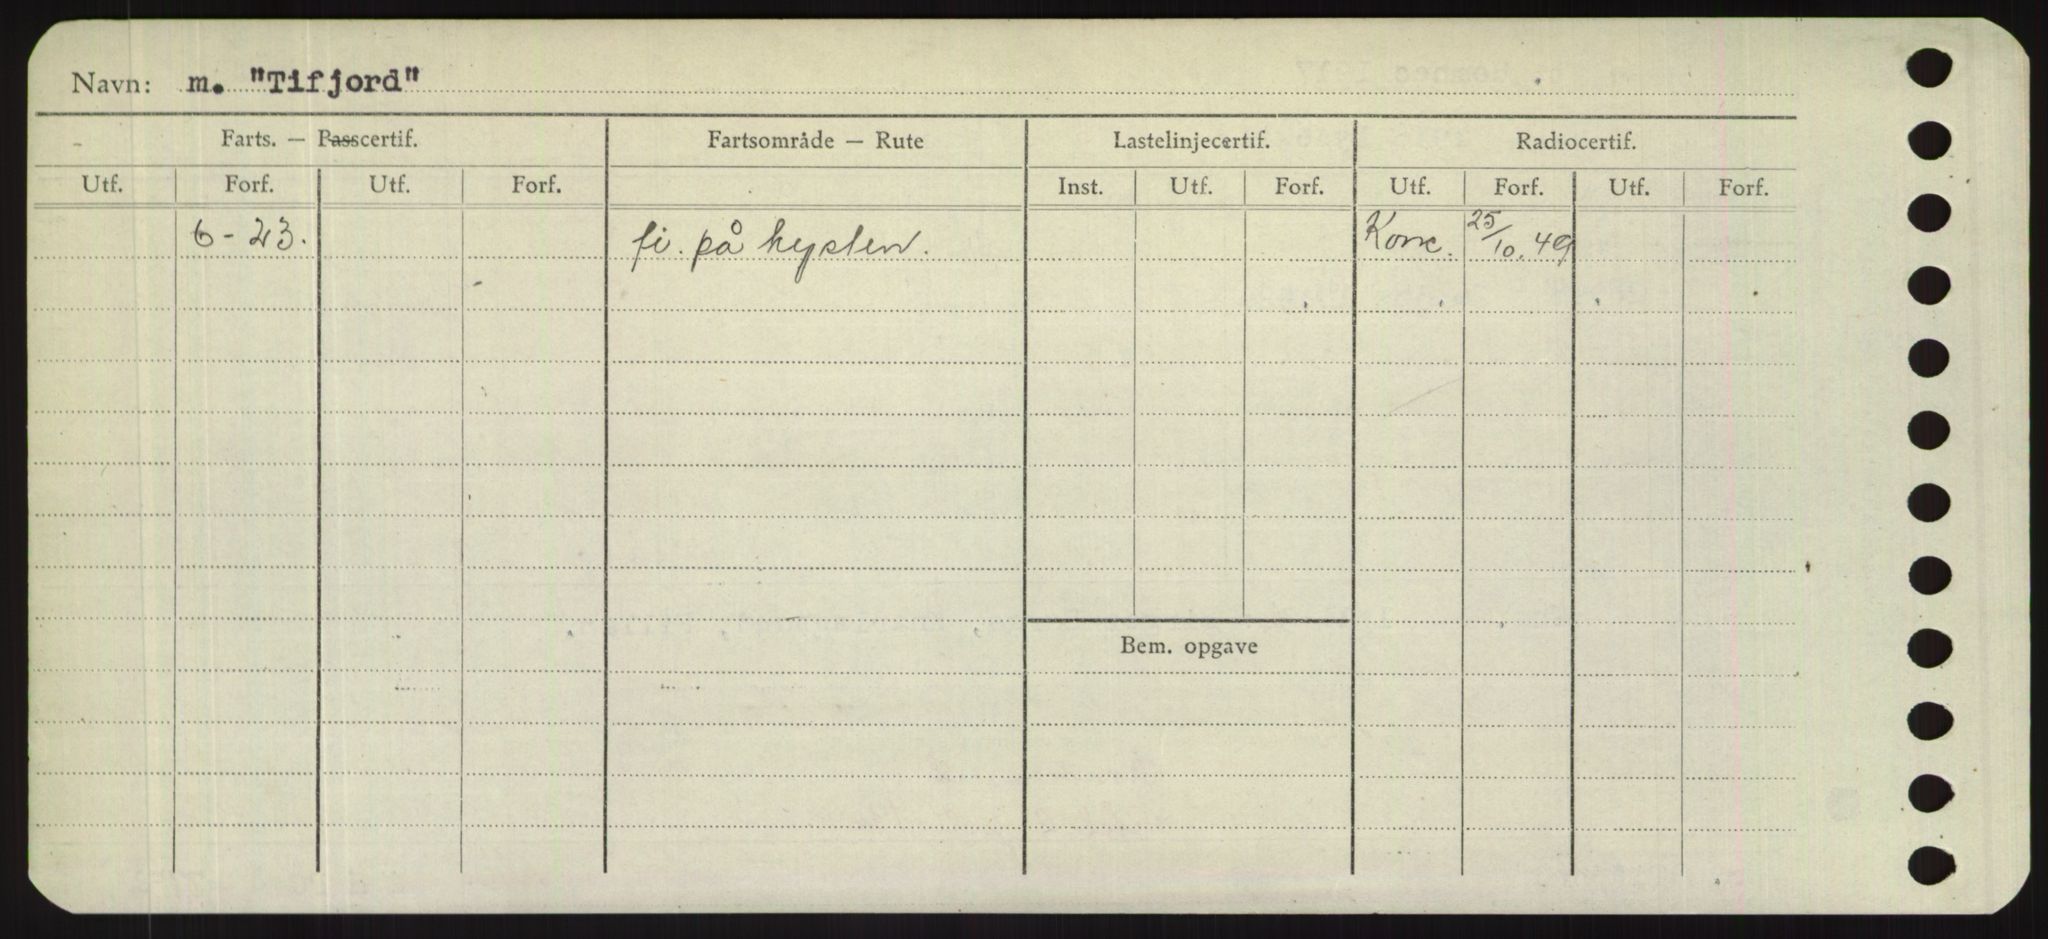 Navn: m. "Tifjord"
Farts. — Passcertif. Fartsområde — Rute Lastelinjecertif. Radiocertif.
Utf. Forf. Utf. Forf. Inst. Utf. Forf. Utf. Forf. Utf. Forf.
6-23. fi. på kysten. Konc. 25/10.49
Bem. opgave